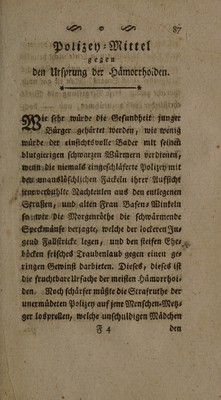 87
Polizey-Mittel
gegen
den Ursprung der Hämorrhoiden.
Wie sehr würde die Gesundheit junger
Bürger gehärtet werden, wie wenig
würde der einsichtsvolle Bader mit seinen
blutgierigen schwarzen Würmern verdienen,
wenn die niemals eingeschläferte Polizey mit
den unauslöschlichen Fackeln ihrer Aufsicht
jene verhüllte Nachteulen aus den entlegenen
Strassen, und alten Frau Basen-Winkeln
so wie die Morgenröthe die schwärmende
Speckmäuse verjagte, welche der lockeren Ju-
gend Fallstricke legen, und den steifen Ehe-
böcken frisches Traubenlaub gegen einen ge-
ringen Gewinst darbieten. Dieses, dieses ist
die fruchtbare Ursache der meisten Hämorrhoi-
den. Noch schärfer müßte die Strafruthe der
unermüdeten Polizey auf jene Menschen-Metz-
ger losprellen, welche unschuldigen Mädchen
F 4 den